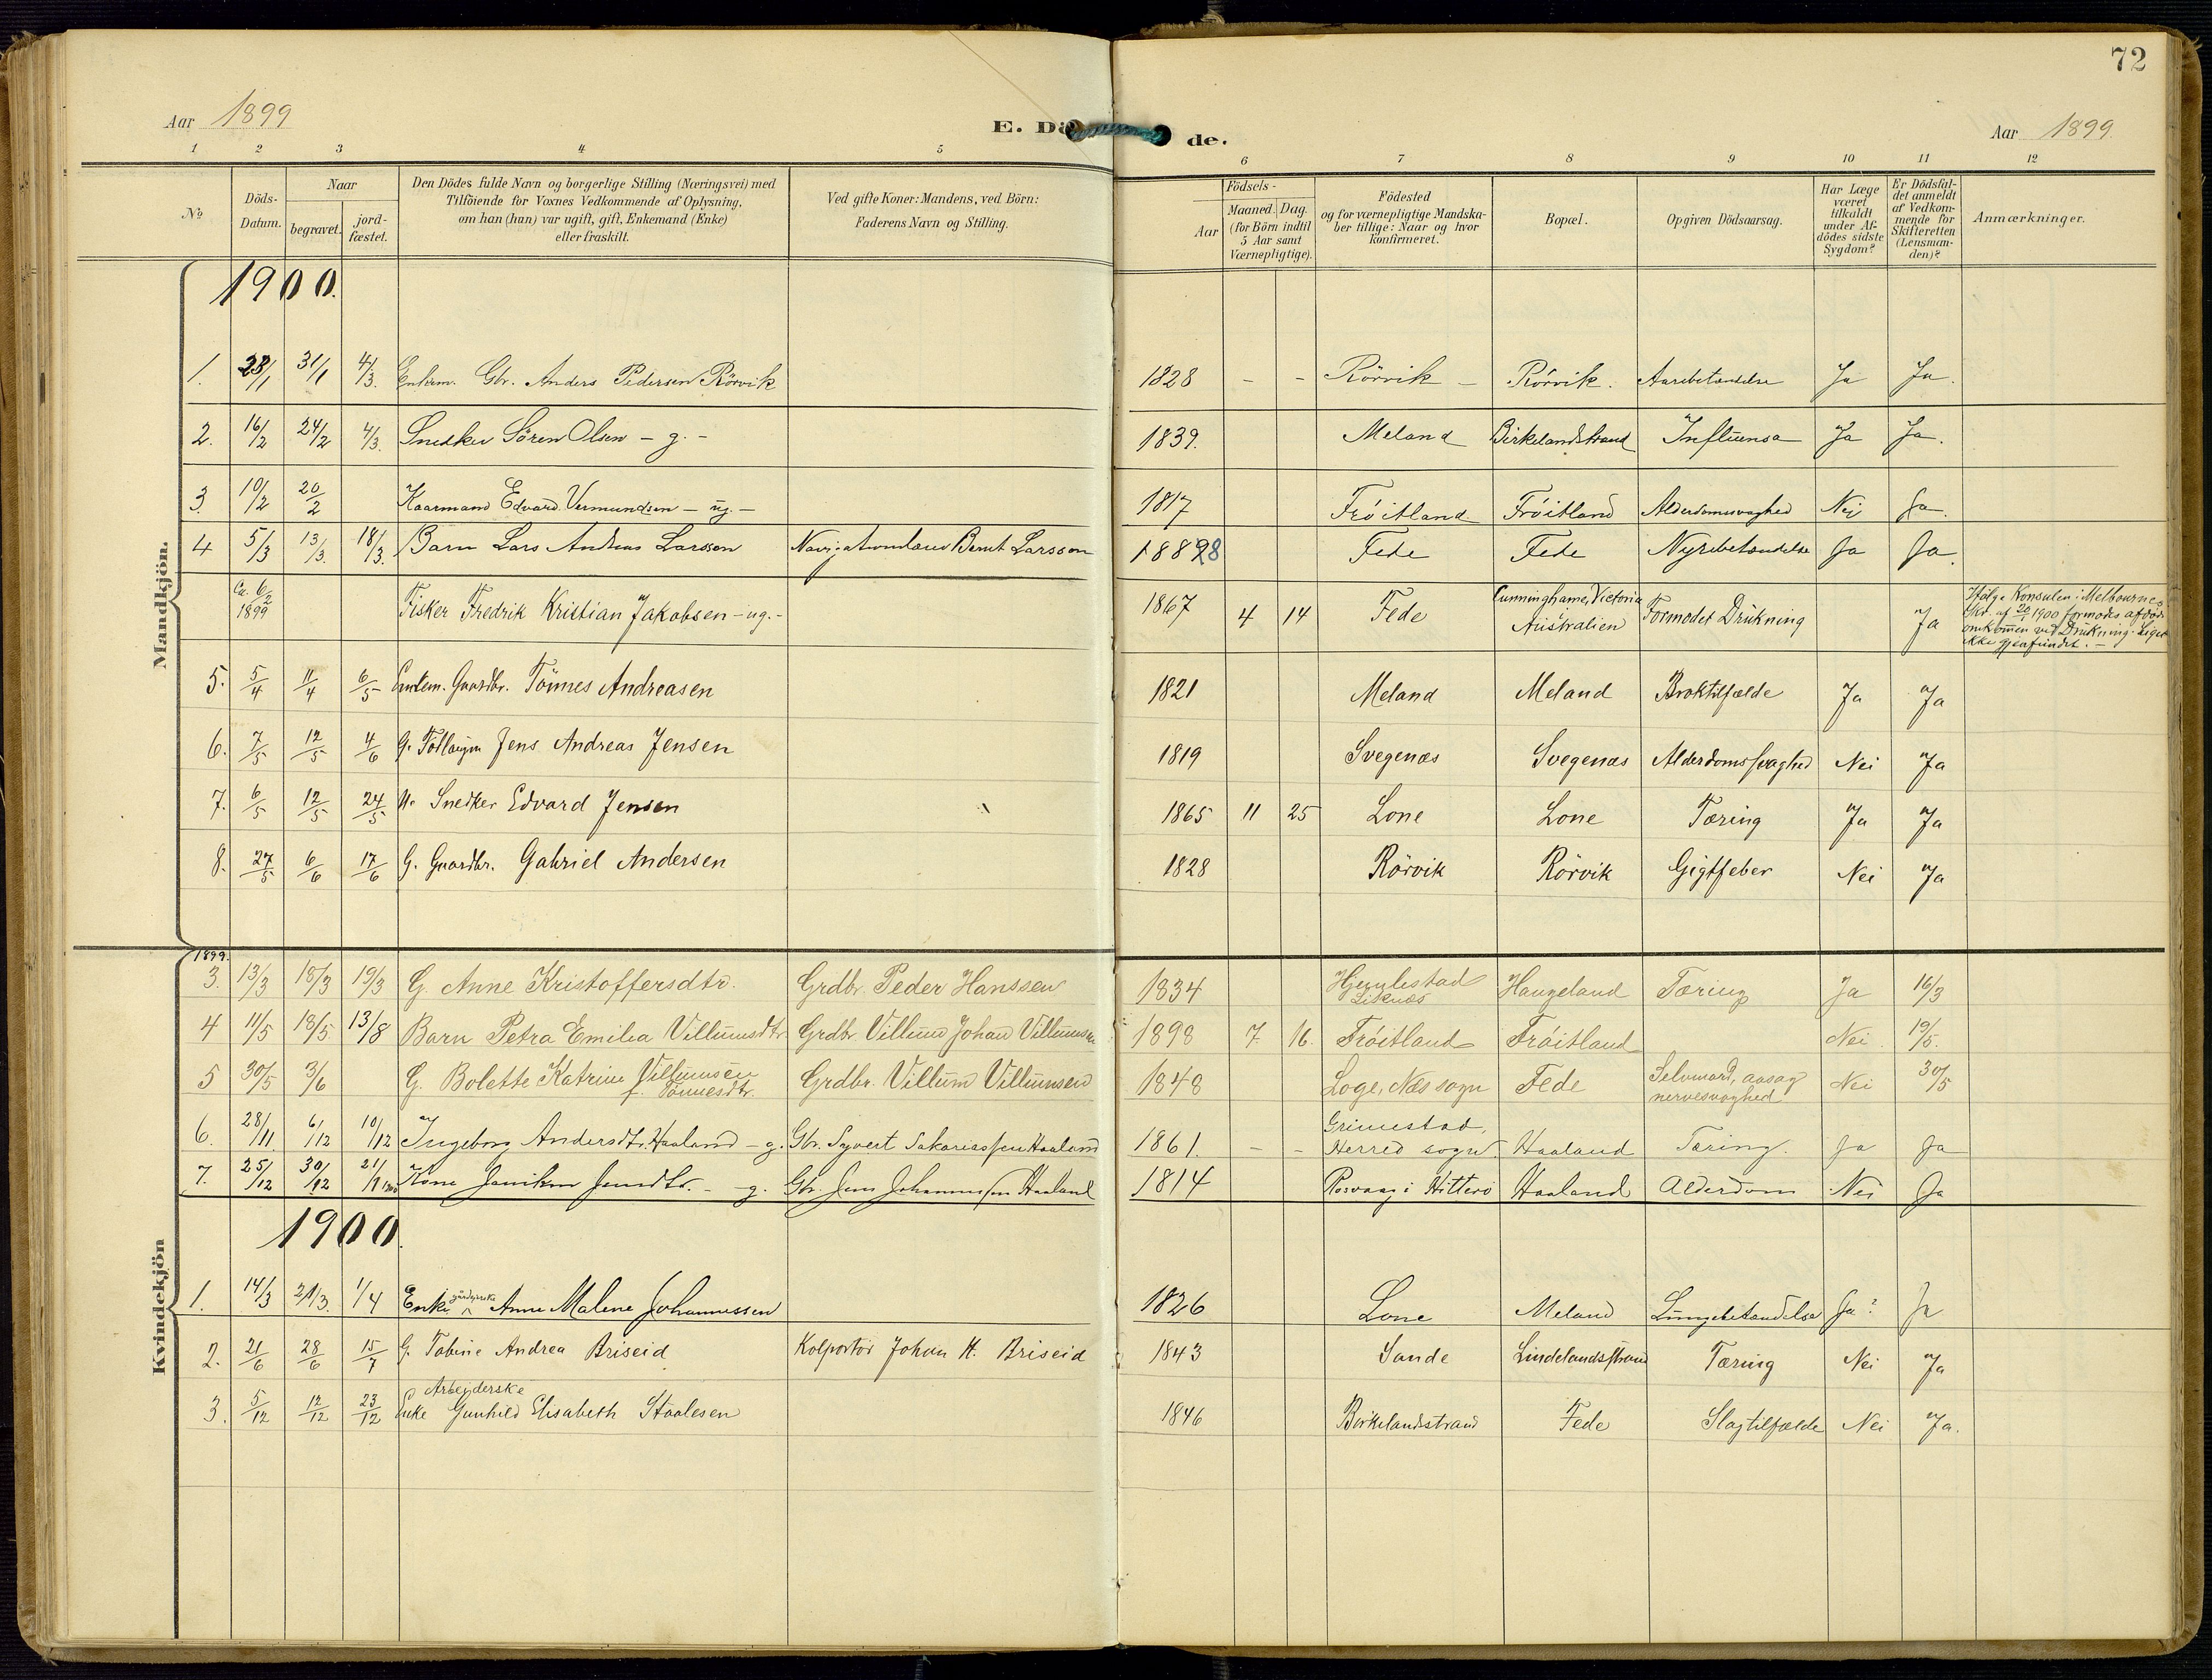 72
Aar 1899
E. Dö
de.
Aar 1899.
1 2 3 4 5 6 7 8 9 10 11 12
No
Döds-
Datum.
Naar
begravet.
jord-
fæstet.
Den Dödes fulde Navn og borgerlige Stilling (Næringsvei) med
Tilföiende for Voxnes Vedkommende af Oplysning,
om han (hun) var ugift, gift, Enkemand (Enke)
eller fraskilt.
Ved gifte Koner: Mandens, ved Börn:
Faderens Navn og Stilling.
Aar
Födsels-
Maaned. Dag.
(for Börn indtil
5 Aar samt
Værnepligtige).
Födested
og for værnepligtige Mandska-
ber tillige: Naar og hvor
konfirmeret.
Bopæl.
Opgiven Dödsaarsag.
Har Læge
været
tilkaldt
under Af-
dödes sidste
Sygdom?
Er Dödsfal-
det anmeldt
af Vedkom-
mende for
Skifteretten
(Lensman-
den)?
Anmærkninger.
Mandkjön.
1900.
1. 28/1 31/1 4/3. Enkem. Gbr. Anders Pedersen Rörvik 1828 - - Rörvik - Rörvik. Aarebetændelse Ja Ja.
2. 16/2 24/2 4/3. Snedker Sören Olsen - g. - 1839. Meland Birkelandstrand Influensa Ja Ja.
3. 10/2 20/2 Kaarmand Edvard Vermundsen - ug. - 1817 Fröitland Fröitland Alderdomsvaghed Nei Ja.
4 5/3 13/3. 18/3. Barn Lars Andreas Larsson Navigationslærer Bernt Larsson Fede Fede Nyrebetændelse Ja Ja.
Ca. 6/2 1899 Fisker Fredrik Kristian Jakobsen - ug. - 1867 4 14 Fede Cunninghame, Victoria
Australien Formodet Drukning Ja
Ifölge Konsulen i Melbournes
Skr. af 20/1 1900 formodes afdöde
omkommen ved Drukning. Liget
ikke gjenfundet. -
5. 5/4 11/4 6/5 Enkem. Gaardbr. Tönnes Andreasen 1821 Meland Meland Broktilfælde Ja Ja
6. 7/5 12/5 4/6 G. Jens Andreas Jensen 1819 Svegenæs Svegenæs Alderdomssvaghed Nei Ja
7. 6/5 12/5 24/5 U. Snedker Edvard Jensen 1865 11 25 Lone Lone Tæring Ja Ja
8. 27/5 6/6 17/6 G. Gaardbr. Gabriel Andersen 1828 Rörvik Rörvik Gigtfeber Nei Ja
Kvindekjön
1899.
3. 13/3 18/3 19/3 G. Anne Kristoffersdtr. Grdbr. Peder Hanssen 1834 Liknæs Haugeland Tæring Ja 16/3
4 11/5 18/5 13/8 Barn Petra Emilia Villumsdtr. Grdbr. Villum Johan Villumsen 1898 7. 16. Fröitland Fröitland Nei. 19/5.
5 30/5 3/6 G. Bolette Katrine Villumsen
f. Tönnesdtr. Grdbr. Villum Villumsen 1848 Loge, Næs sogn Fede Selvmord, aarsag
nervesvaghed Nei 30/5
6. 28/11 6/12 10/12 Ingeborg Andersdtr. Haaland - g. Gbr. Syvert Sakariassen Haaland 1861. - - Grimestad,
Herred sogn. Haaland Tæring. Ja Ja
7. 25/12 30/12 21/1 1900 Kone Janikea Jensdtr. - g. Gbr. Jens Johannessen Haaland 1814 Rosvaag i Hitterö Haaland Alderdom Nei Ja
1900.
1. 14/3 21/3. 1/4 Enke Anne Malene Johannessen 1826 Lone Meland Lungebetændelse Ja? Ja
2. 21/6 28/6 15/7 G. Tobine Andrea Briseid Kolportör Johan H. Briseid 1843 Sande Lindelandsstrand Tæring Nei Ja
3. 5/12 12/12 23/12 Arbeiderske
Enke Gunhild Elisabeth Staalesen 1846 Birkelandsstrand Fede Slagtilfælde Nei Ja.